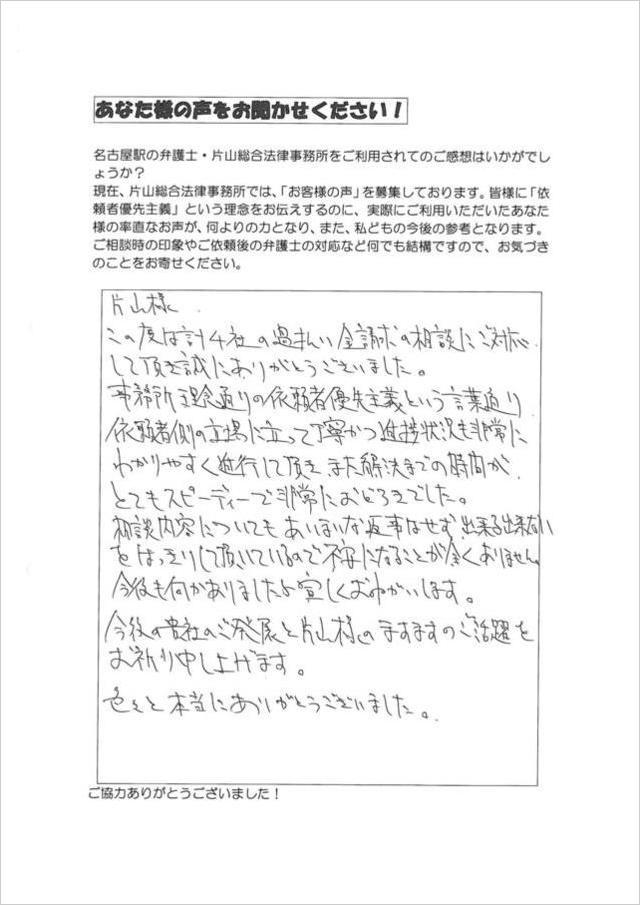 あなた様の声をお聞かせください！
名古屋駅の弁護士・片山総合法律事務所をご利用されてのご感想はいかがでし
ょうか？
現在、片山総合法律事務所では、「お客様の声」を募集しております。皆様に「依
頼者優先主義」という理念をお伝えするのに、実際にご利用いただいたあなた
様の率直なお声が、何よりの力となり、また、私どもの今後の参考となります。
ご相談時の印象やご依頼後の弁護士の対応など何でも結構ですので、お気づき
のことをお寄せください。
片山様
この度は計4社の過払い金請求の相談にご対応
して頂き誠にありがとうございました。
事務所理念通りの依頼者優先主義という言葉通り
依頼者側の立場に立って丁寧かつ進捗状況も非常に
わかりやすく進行して頂き、また解決までの時間が
とてもスピーディーで非常におどろきでした。
相談内容についてもあいまいな返事はせず出来る出来ない
をはっきりして頂いているので不安になることが全くありません。
今後も何かありましたら宜しくおねがいします。
今後の貴社のご発展と片山様のますますのご活躍を
お祈り申し上げます。
色々と本当にありがとうございました。
ご協力ありがとうございました！